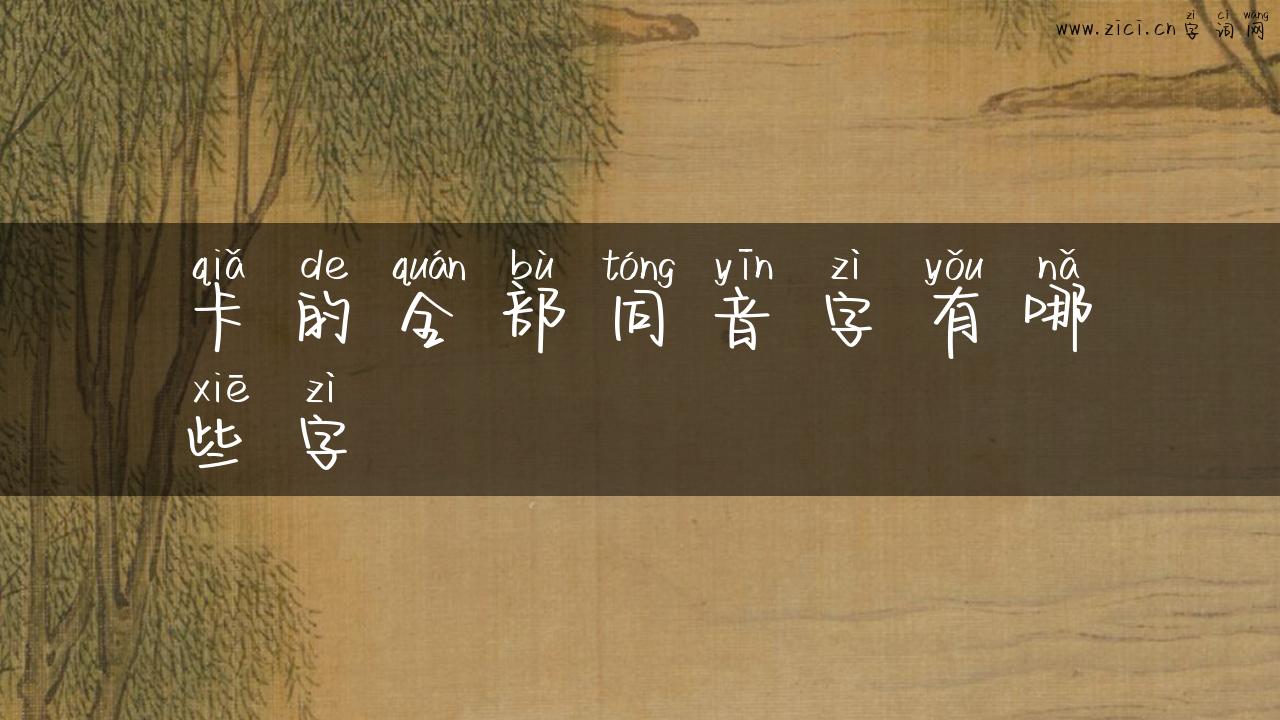 zì cí wǎng
www.zici.cn 字词网
qiǎ de quán bù tóng yīn zì yǒu nǎ
卡的全部同音字有哪
xiē zì
些字